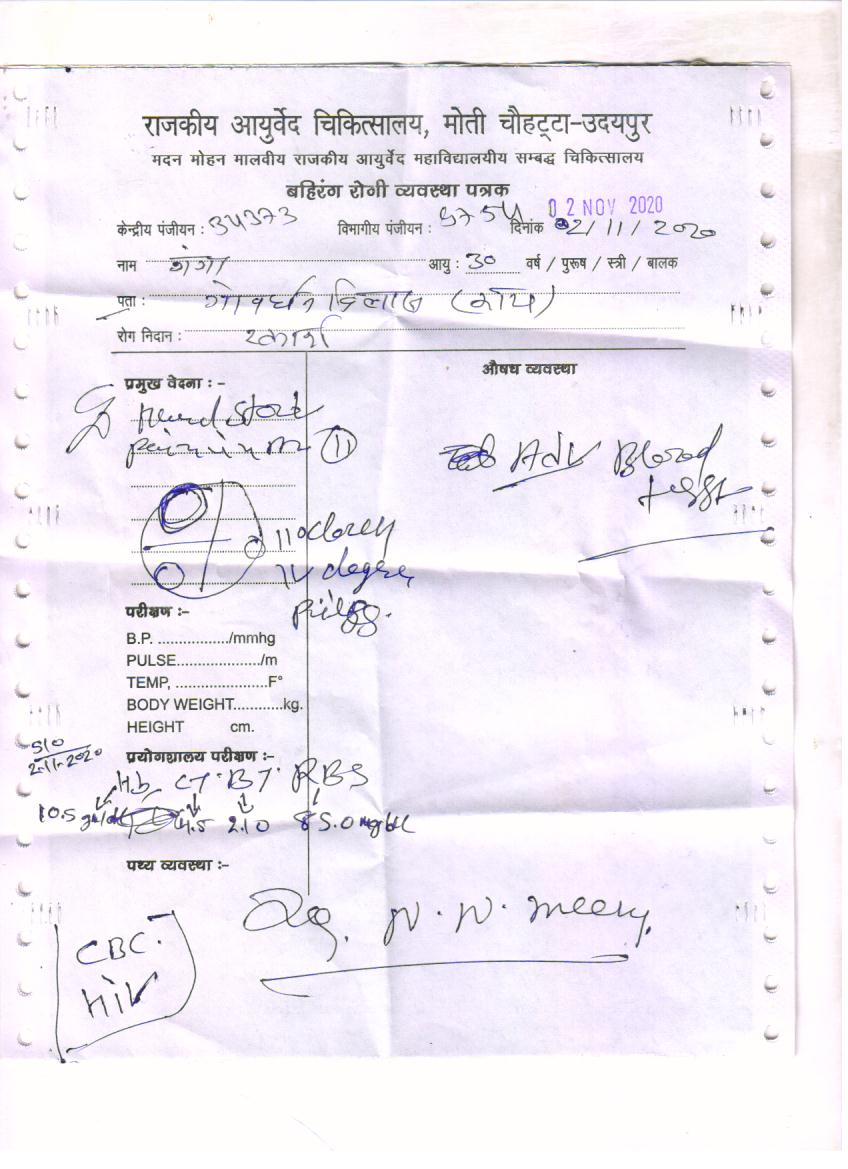 राजकीय आयुर्वेद चिकित्सालय, मोती चौहट्टा-उदयपुर
मदन मोहन मालवीय राजकीय आयुर्वेद महाविद्यालयीय सम्बद्ध चिकित्सालय
बहिरंग रोगी व्यवस्था पत्रक
02 NOV 2020
केन्द्रीय पंजीयन : 34373 विभागीय पंजीयन : दिनांक 02/11/2020
नाम गंगा आयु : 30 वर्ष / पुरूष / स्त्री / बालक
पता : गोवर्धन विलास
रोग निदान :
प्रमुख वेदना : - औषध व्यवस्था
Hard stool
pain in (11)
Adv Blood
test
11 oclock
IV degree
piles.
परीक्षण :-
B.P. ................./mmhg
PULSE...................../m
TEMP, .....................F°
BODY WEIGHT............kg.
HEIGHT cm.
2-11-2020
प्रयोगशालय परीक्षण :-
Hb CT BT RBS
10.5 gm/dl 4.5 2.10 85.0 mg/dl
पथ्य व्यवस्था :-
CBC.
HIV